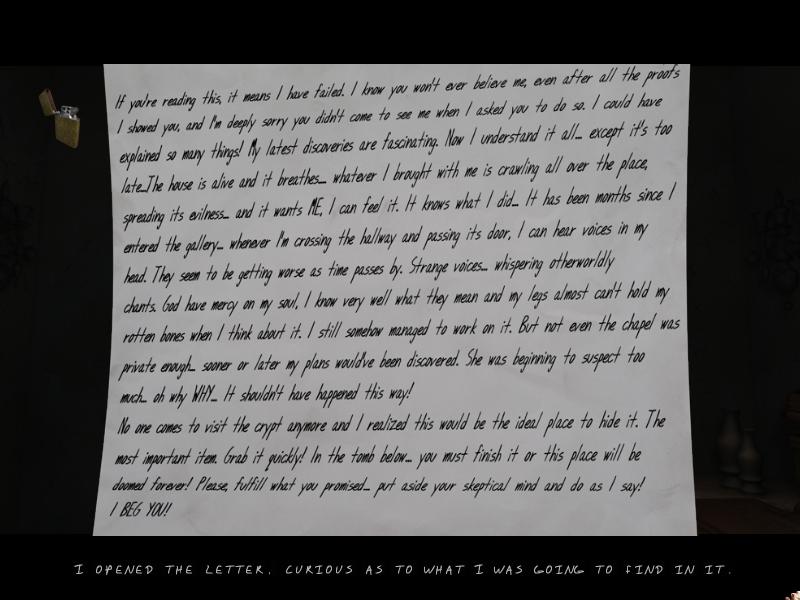 If you're reading this, it means I have failed. I know you won't ever believe me, even after all the proofs
I showed you, and I'm deeply sorry you didn't come to see me when I asked you to do so. I could have
explained so many things! My latest discoveries are fascinating. Now I understand it all... except it's too
late...The house is alive and it breathes... whatever I brought with me is crawling all over the place,
spreading its evilness... and it wants ME, I can feel it. It knows what I did... It has been months since I
entered the gallery... whenever I'm crossing the hallway and passing its door, I can hear voices in my
head. They seem to be getting worse as time passes by. Strange voices... whispering otherworldly
chants. God have mercy on my soul, I know very well what they mean and my legs almost can't hold my
rotten bones when I think about it. I still somehow managed to work on it. But not even the chapel was
private enough... sooner or later my plans would've been discovered. She was beginning to suspect too
much... oh why WHY... It shouldn't have happened this way!
No one comes to visit the crypt anymore and I realized this would be the ideal place to hide it. The
most important item. Grab it quickly! In the tomb below... you must finish it or this place will be
doomed forever! Please, fulfill what you promised... put aside your skeptical mind and do as I say!
I BEG YOU!
I OPENED THE LETTER, CURIOUS AS TO WHAT I WAS GOING TO FIND IN IT.